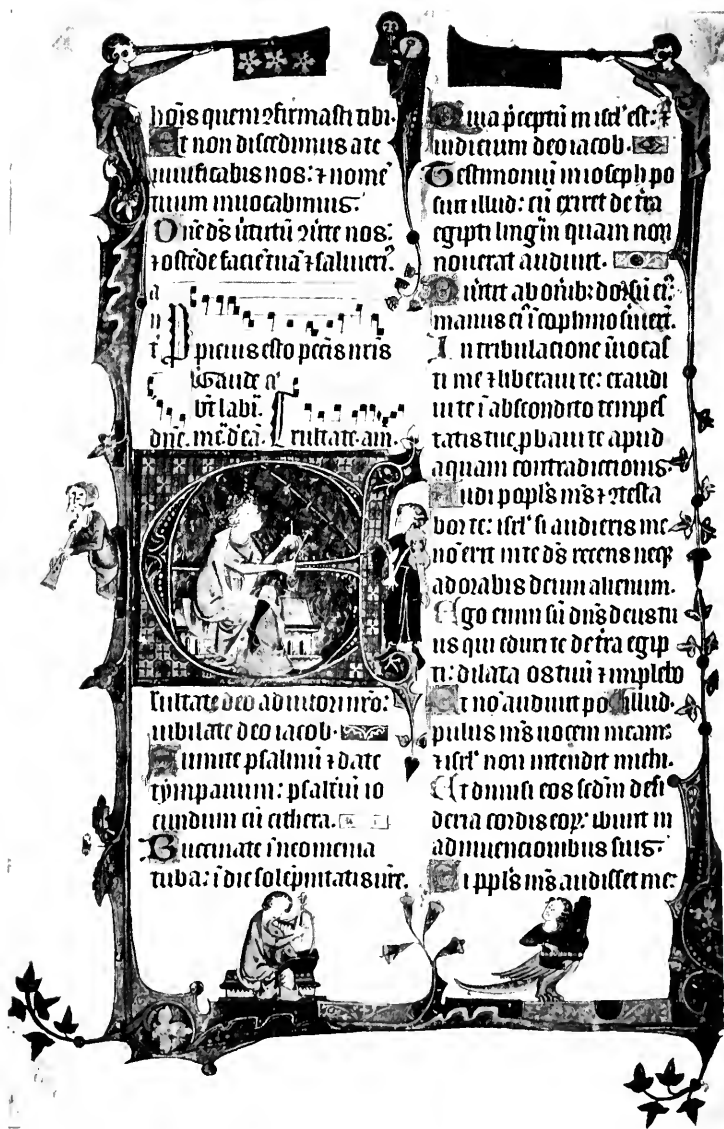 hoīs quem ꝯfirmasti tibi.
Et non discedimus a te
uiuificabis nos: ⁊ nomē
tuum inuocabimus.
Dn̄e ds̄ ūtutū ꝯūte nos:
⁊ ostēde faciē tuā ⁊ salui erī.
a
n
t̄ Ppicius esto pecīs nrīs
Gaude
ut labi.
dn̄e. Exultate. am.
E
xultate deo adiutori nrō:
iubilate deo iacob.
Sumite psalmū ⁊ date
tympanum: psaltūi io
cundum cū cithera.
Buccinate ī neomenia
tuba: ī die solēpnitatis ūre.
Quia p̄ceptū in isrl' est: ⁊
iudicium deo iacob.
Testimoniū in ioseph po
suit illud: cū exiret de tr̄a
egipti lingm̄ quam non
nouerat audiuit.
Diūtit ab onīb; dorsū eī:
manus eī ī cophino siuierī.
In tribulacione īuocas
ti me ⁊ liberaui te: exaudi
ui te ī abscondito tempes
tatis tue pbaui te apud
aquam contradictionis.
Audi popls ms̄ ⁊ ꝯtesta
bor te: isrl' si audieris me
nō erit in te ds̄ recens neqꝫ
adorabis deum alienum.
Ego enim sū dn̄s deus tu
us qui eduxi te de tr̄a egip
ti: dilata os tuū ⁊ implebo
Et nō audiuit po illud.
pulus ms̄ uocem meam:
⁊ isrl' non intendit michi.
Et dimisi eos scdm̄ desi
deria cordis eoꝝ: ibunt in
adinuencionibus suis.
Si ppls ms̄ audisset me: